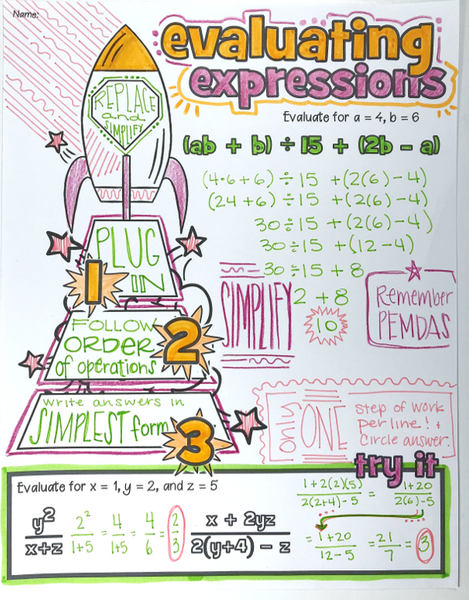 Name:
evaluating
expressions
REPLACE
and
SIMPLIFY
Evaluate for a = 4, b = 6
(ab + b) ÷ 15 + (2b - a)
(4·6+6) ÷ 15 + (2(6) - 4)
(24 + 6) ÷ 15 + (2(6) - 4)
30 ÷ 15 + (2(6) - 4)
30 ÷ 15 + (12 - 4)
30 ÷ 15 + 8
2 + 8
10
PLUG
IN
1
SIMPLIFY
Remember
PEMDAS
FOLLOW
ORDER
of operations
2
write answers in
SIMPLEST form
3
only
ONE
step of work
per line! +
circle answer.
try it
Evaluate for x = 1, y = 2, and z = 5
y²/x+z 2²/1+5 = 4/1+5 = 4/6 = 2/3
x + 2yz/2(y+4) - z
1+2(2)(5)/2(2+4)-5 = 1+20/2(6)-5
= 1+20/12-5 = 21/7 = 3